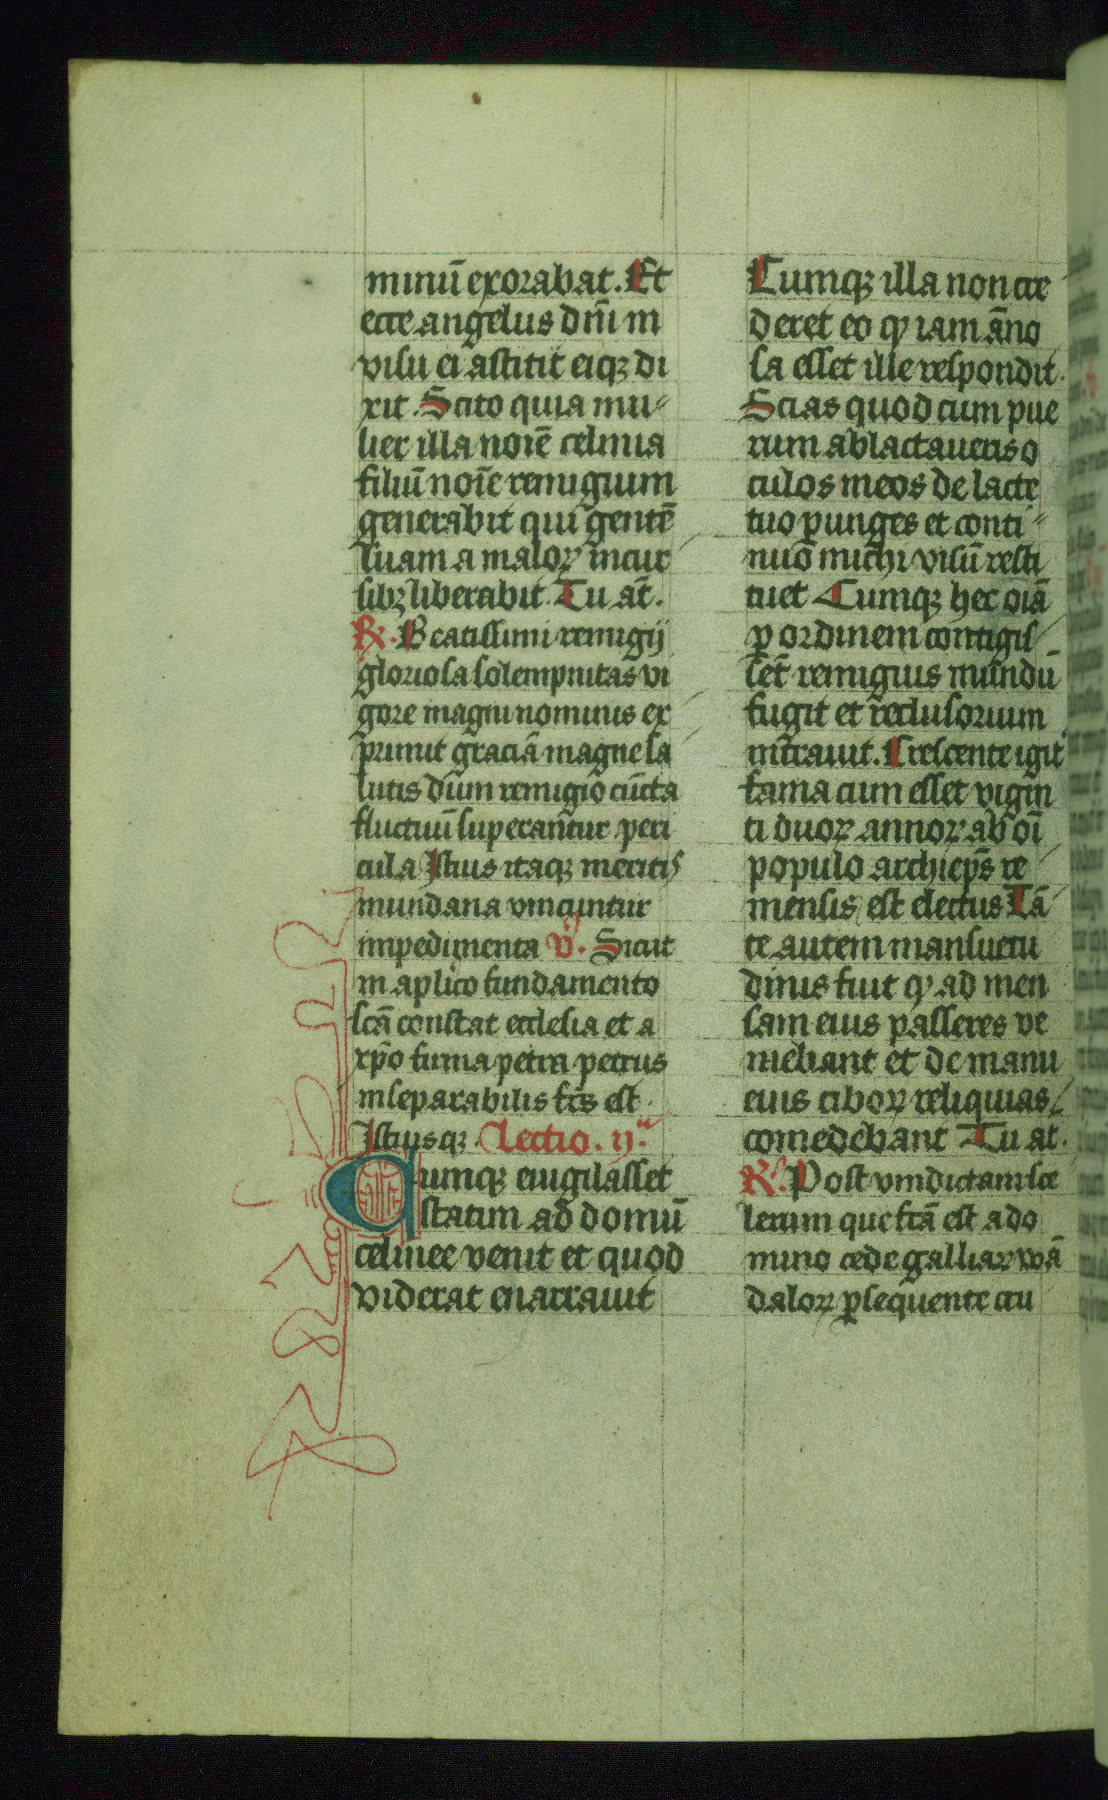 minū exorabat. Et
ecce angelus dn̄i in
visu ei astitit eiqꝫ di
xit. Scito quia mu-
lier illa noīe celinia
filiū noīe remigium
generabit qui gentē
tuam a maloꝝ incur
sibꝫ liberabit. Tu aūt.
R̸. Beatissimi remigij
gloriosa solempnitas vi
gore magni nominis ex
primit graciā magne sa
lutis dum remigio cūcta
fluctuū superantur peri
cula Istius itaqꝫ meritis
mundana vincuntur
impedimenta v̄. Sicut
in aplico fundamento
scā constat ecclesia et a
xp̄o firma petra petrus
inseparabilis fc̄s est.
Istiusqꝫ. Lectio. ijª.
Cumqꝫ euigilasset
statim ad domū
celinee venit et quod
viderat enarrauit
Cumqꝫ illa non cre
deret eo ꝙ iam āno
sa esset ille respondit.
Scias quod cum pue
rum ablactaueris o
culos meos de lacte
tuo punges et conti-
nuo michi visū resti
tuet Cumqꝫ hec oīa
ꝑ ordinem contigis
set remigius mundū
fugit et reclusorium
intrauit. Crescente igit
fama cum esset vigin
ti duoꝝ annoꝝ ab oī
populo archiep̄s re
mensis est electus Tā
te autem mansuetu
dinis fuit ꝙ ad men
sam eius passeres ve
niebant et de manu
eius ciboꝝ reliquias
comedebant Tu at.
R̸. Post vindictam sce
lerum que fcā est a do
mino cede galliaꝝ wā
daloꝝ ꝑsequente cru